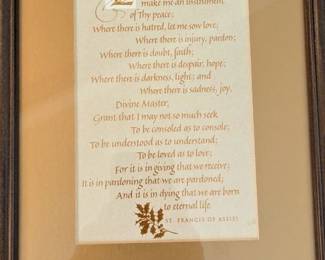 make me an instrument
of Thy peace;
Where there is hatred, let me sow love;
Where there is injury, pardon;
Where there is doubt, faith;
Where there is despair, hope;
Where there is darkness, light; and
Where there is sadness, joy.
Divine Master,
Grant that I may not so much seek
To be consoled as to console;
To be understood as to understand;
To be loved as to love;
For it is in giving that we receive;
It is in pardoning that we are pardoned;
And it is in dying that we are born
to eternal life.
ST. FRANCIS OF ASSISI